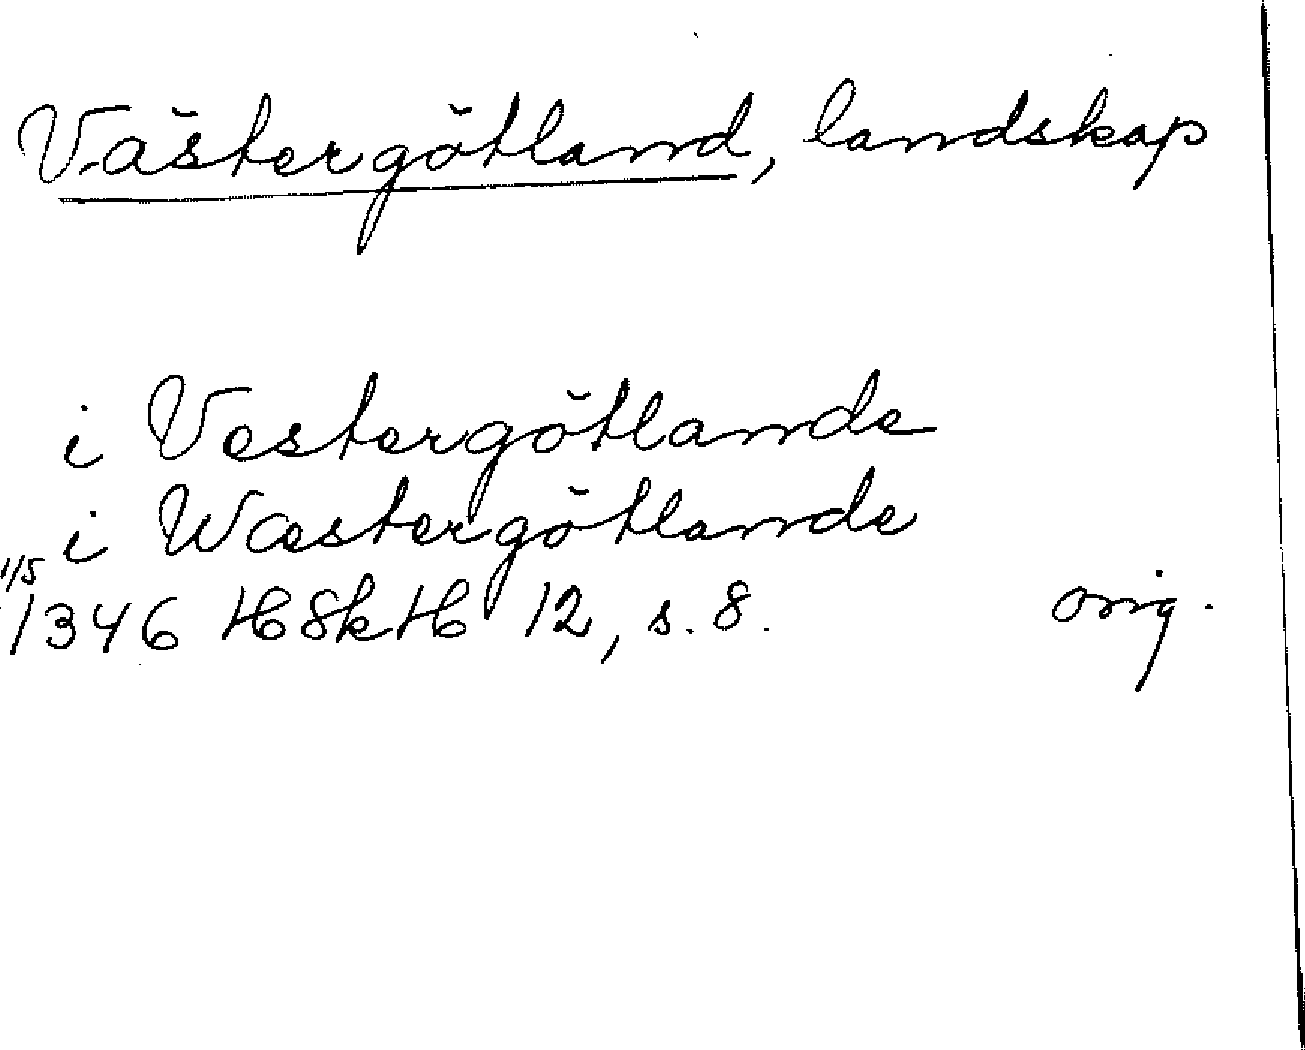 Västergötland, landskap
i Vestergötlande
i Wæstergötlande
1/5
1346 HSkH 12, s. 8. orig.